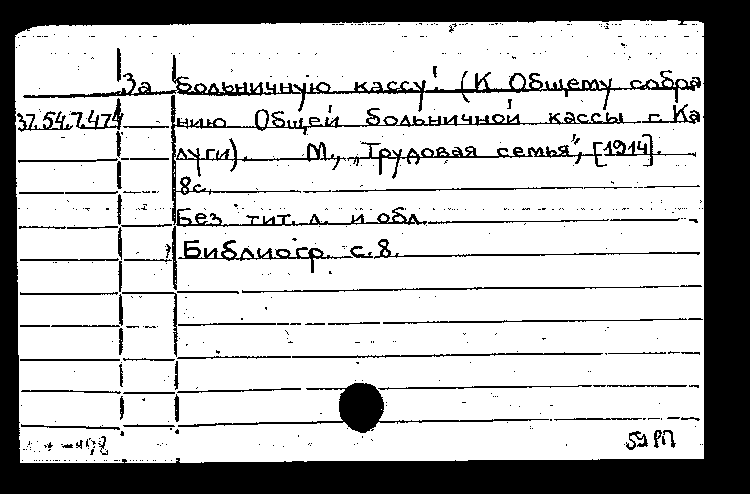 За больничную кассу! (К Общему собра
37.54.7.474 нию Общей больничной кассы г. Ка
луги). М., „Трудовая семья", [1914].
8с.
Без тит. л. и обл.
Библиогр. с.8.
59 РП